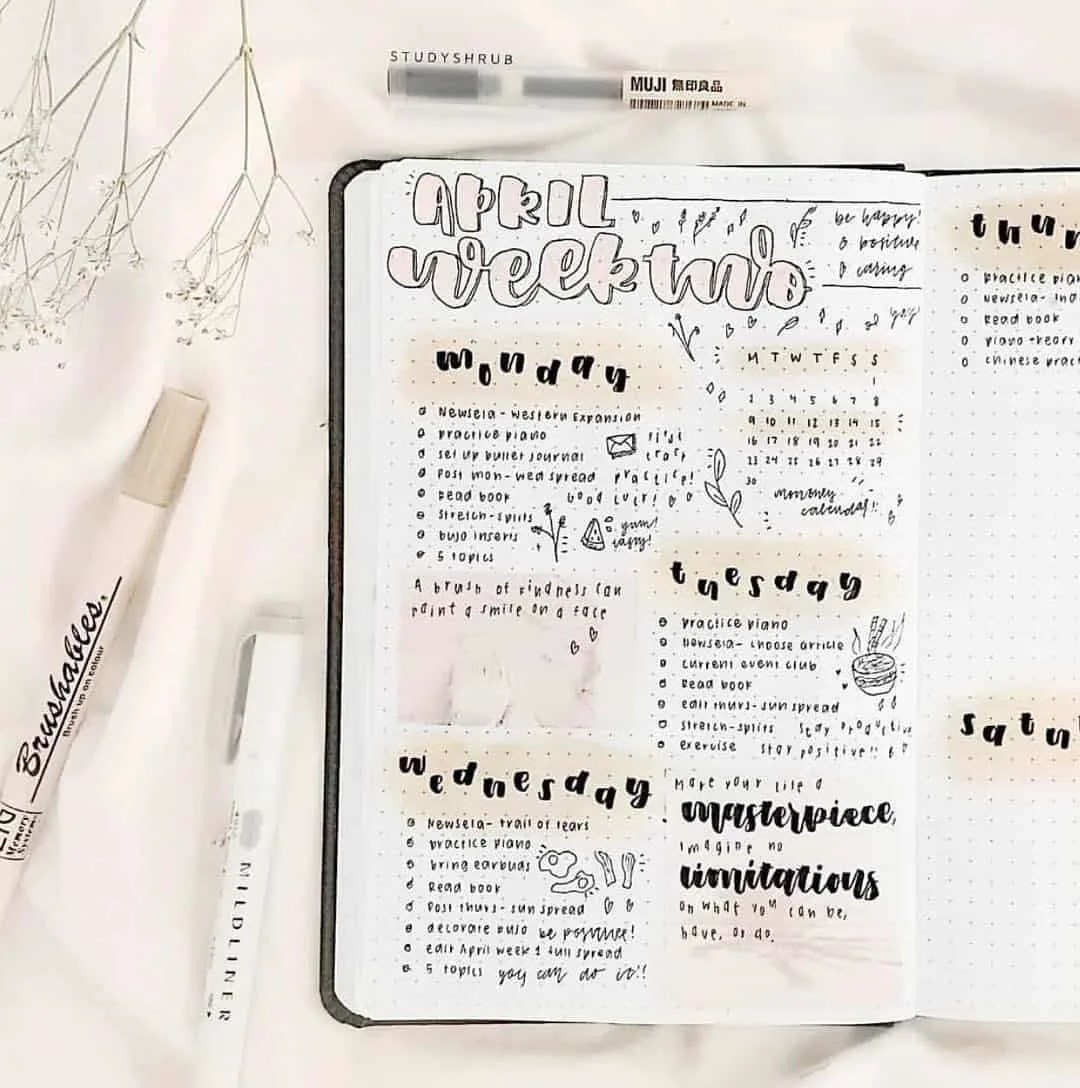 STUDYSHRUB
MUJI 無印良品
MADE IN
APRIL
week two
be happy!
& positive
& caring
yay
monday
o Newsela- Western Expansion
o practice piano
o set up bullet journal
o Post mon-wed spread
o Read book
o stretch-splits
o bujo inserts
o 5 topics
practice!
good luck!
yum!
M T W T F S S
1
2 3 4 5 6 7 8
9 10 11 12 13 14 15
16 17 18 19 20 21 22
23 24 25 26 27 28 29
30
monthly
calendar!!
A brush of kindness can
paint a smile on a face
tuesday
o practice piano
o Newsela- choose article
o current event club
o Read book
o edit thurs-sun spread
o stretch-splits stay productive
o exercise stay positive!!
wednesday
o Newsela- trail of tears
o practice piano
o bring earbuds
o Read book
o Post thurs-sun spread
o decorate bujo be positive!
o edit April week 1 full spread
o 5 topics you can do it!!
Make your life a
masterpiece,
imagine no
limitations
on what you can be,
have, or do.
thur
o practice pian
o Newsela- Ind
o Read book
o piano theory
o chinese pract
satu
Brushables®
Brush up on colour
ZIG
Memory
System
MILDLINER